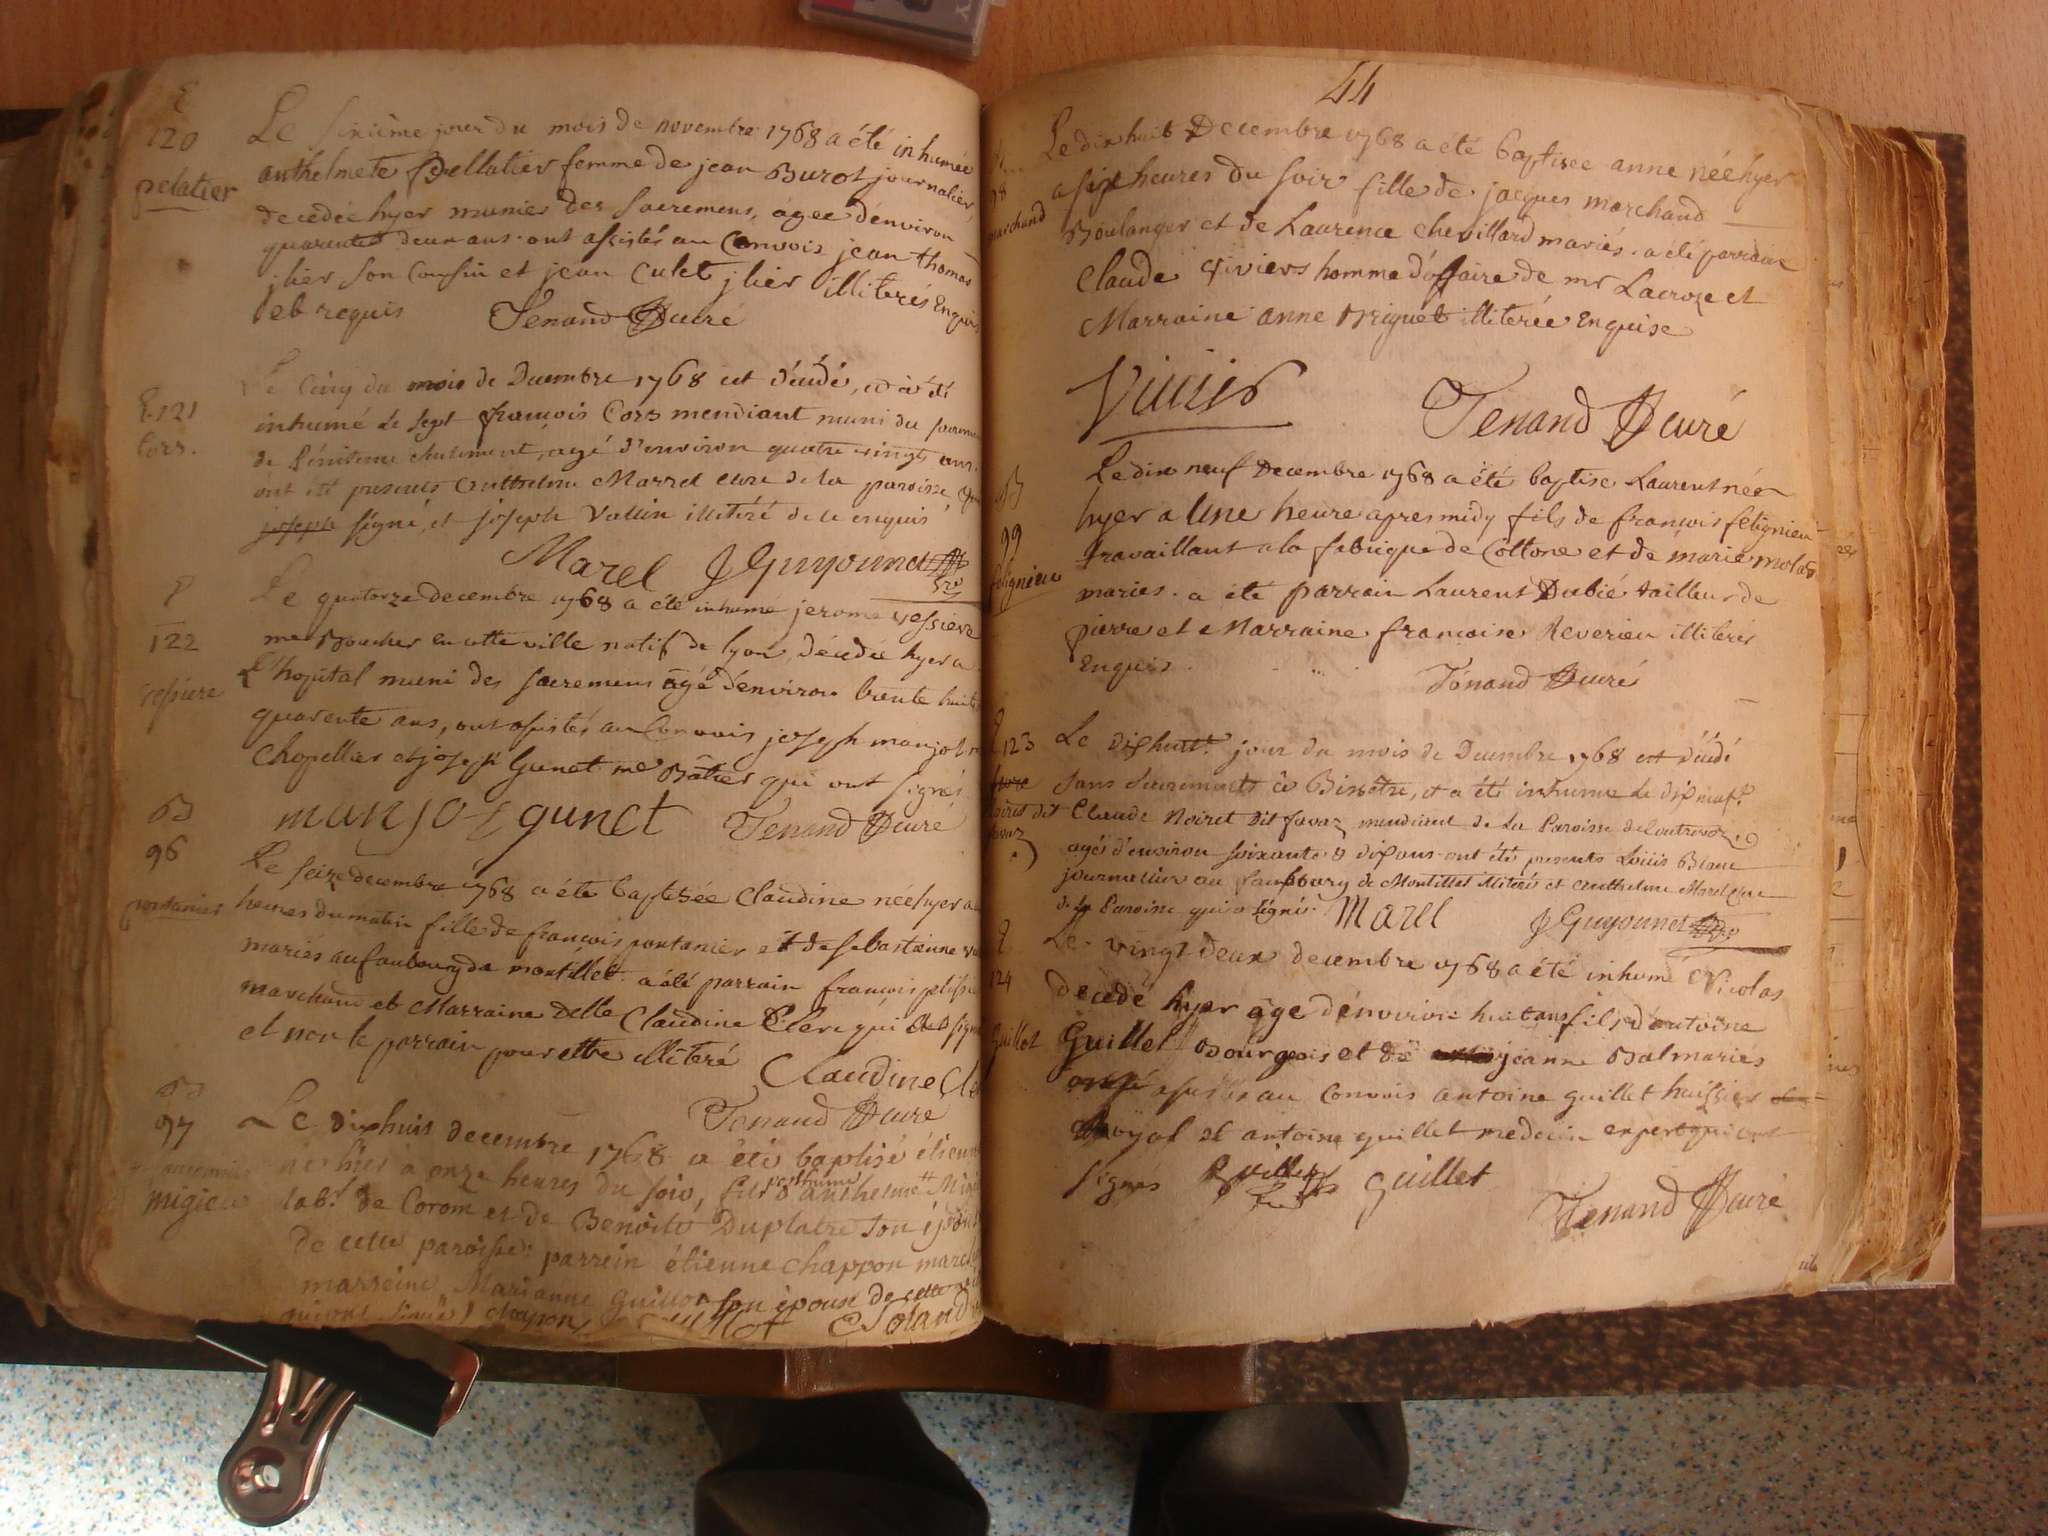 E
120
pelatier
Le sixième jour du mois de novembre 1768 a été inhumée
anthelmete Pellatier femme de jean Burot journalier,
decedée hyer munier des Sacremens, agee d'environ
quarente deux ans. ont assistés au Convois jean thomas
jlier son Cousin et jean Culet jlier illiterés Enquis
et requis Tenand Curé
E. 121
Cors.
Le cinq du mois de Decembre 1768 est décédé, et a été
inhumé le sept françois Cors mendiant muni du sacrem
de Pénitence seulement, agé d'environ quatre vingt ans.
ont été presents Anthelme Marrel cure de la paroisse qui
joseph signé, et joseph Vullin illitéré de ce enquis
Marel J Guyonnet
122
vessiere
Le quatorze decembre 1768 a été inhumé jerome vessiere
me Boucher en cette ville natif de lyon, décédé hyer a
l'hopital muni des sacremens agé d'environ trente huit
quarente ans, ont assistés au Convois joseph manjot
Chapellier et joseph Gunet me Bâtier qui ont signés.
manjot gunet Tenand Curé
B
96
pontanier
Le seize decembre 1768 a été baptisée Claudine née hyer a
heures du matin fille de françois pontanier et de sebastienne
mariés au faubourg de montillet. a été parrain françois
marchand et Marraine Delle Claudine Clerc qui a signé
et non le parrain pour ettre illiteré
Claudine Cle
Tenand Curé
B
97
migieu
Le dix huit decembre 1768 a été baptisé étienne
né hier à onze heures du soir, fils posthume d'anthelme
labr. de Corom et de Benoîte Duplatre son épouse
de cette paroisse: parrein étienne Chappon march
marreine Marianne Guillot son épouse de cette
qui ont signé
44
98
marchand
Le dix huit Decembre 1768 a eté baptisee anne née hyer
a sept heures du soir fille de jacques marchand
Boulanger et de Laurence chevillard mariés. a été parrain
Claude Viviers homme d'affaire de mr Lacroze et
Marraine anne Briquet illiterée Enquise
Vivier
Tenand Curé
B
99
felignieu
Le dix neuf Decembre 1768 a été baptise Laurent né
hyer a Une heure apres midy fils de francois felignieu
travaillant a la fabrique de Cottone et de marie molas
mariés. a ete parrain Laurent Dubié tailleur de
pierre et Marraine francoise Reverieu illiterés
Enquis.
Tenand Curé
E 123
Noiret dit
favaz
Le dixhuitt. jour du mois de Decembre 1768 est décédé
sans sacrements à Bissêtre, et a été inhumé le dix neuf.
Claude Noiret dit favaz mendiant de la Paroisse de
agé d'environ soixante & dix ans. ont été presents Loüis Blanc
journalier au fauxbourg de Montillet illiteré et Anthelme Marel Cure
de la Paroisse qui a signé. Marel J Guyonnet
E
124
Guillot
Le vingt deux decembre 1768 a été inhumé Nicolas
decedé hyer age d'environ huit ans fils d'antoine
Guillot Bourgeois et de jeanne Bal mariés
assistés au Convois antoine guillot huissier
Royal et antoine guillot medecin expert qui ont
signés Guillot
Tenand Curé